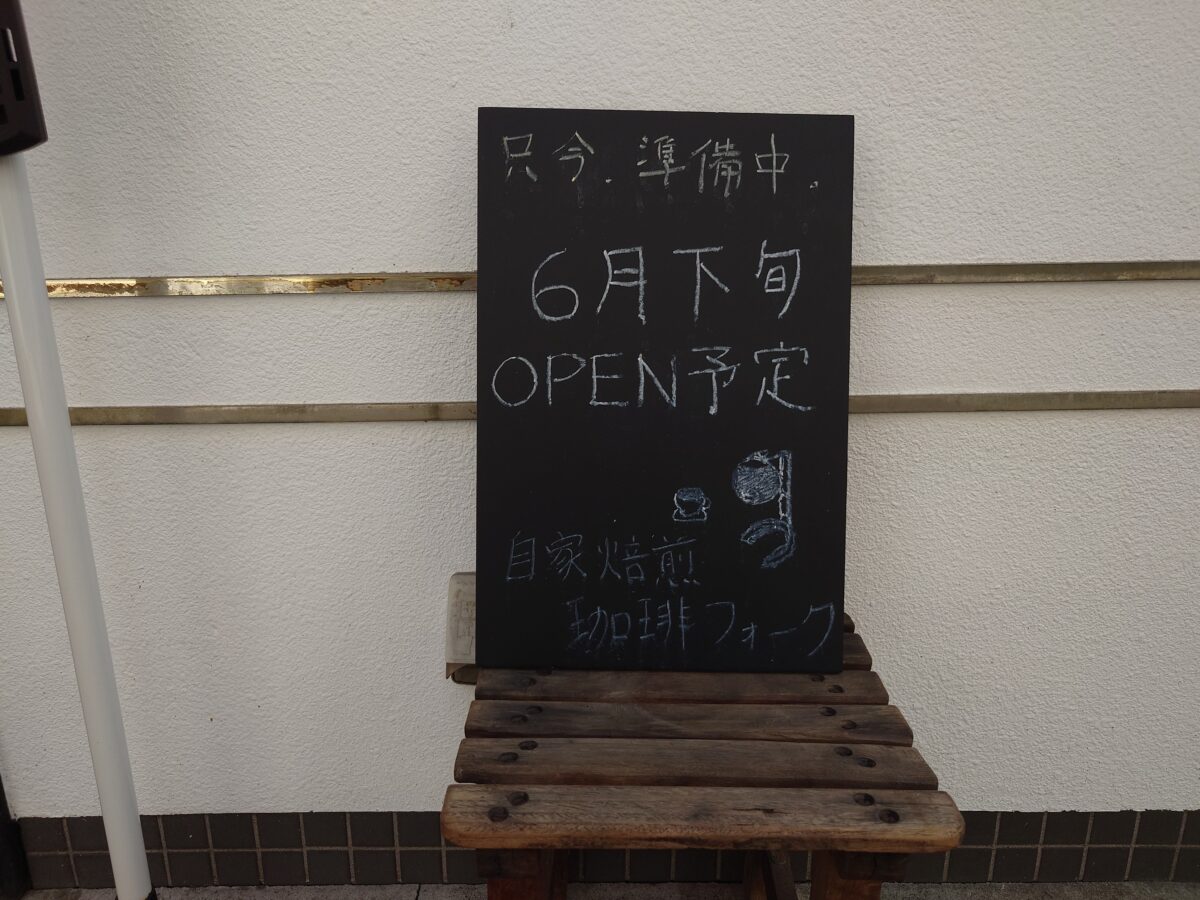 只今.準備中.
6月下旬
OPEN予定
自家焙煎
珈琲フォーク